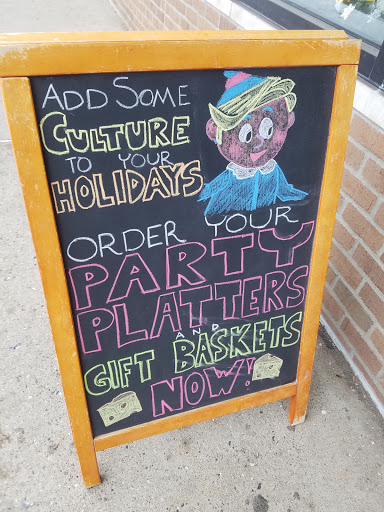 ADD SOME
CULTURE
TO YOUR
HOLIDAYS
ORDER YOUR
PARTY
PLATTERS
AND
GIFT BASKETS
NOW!